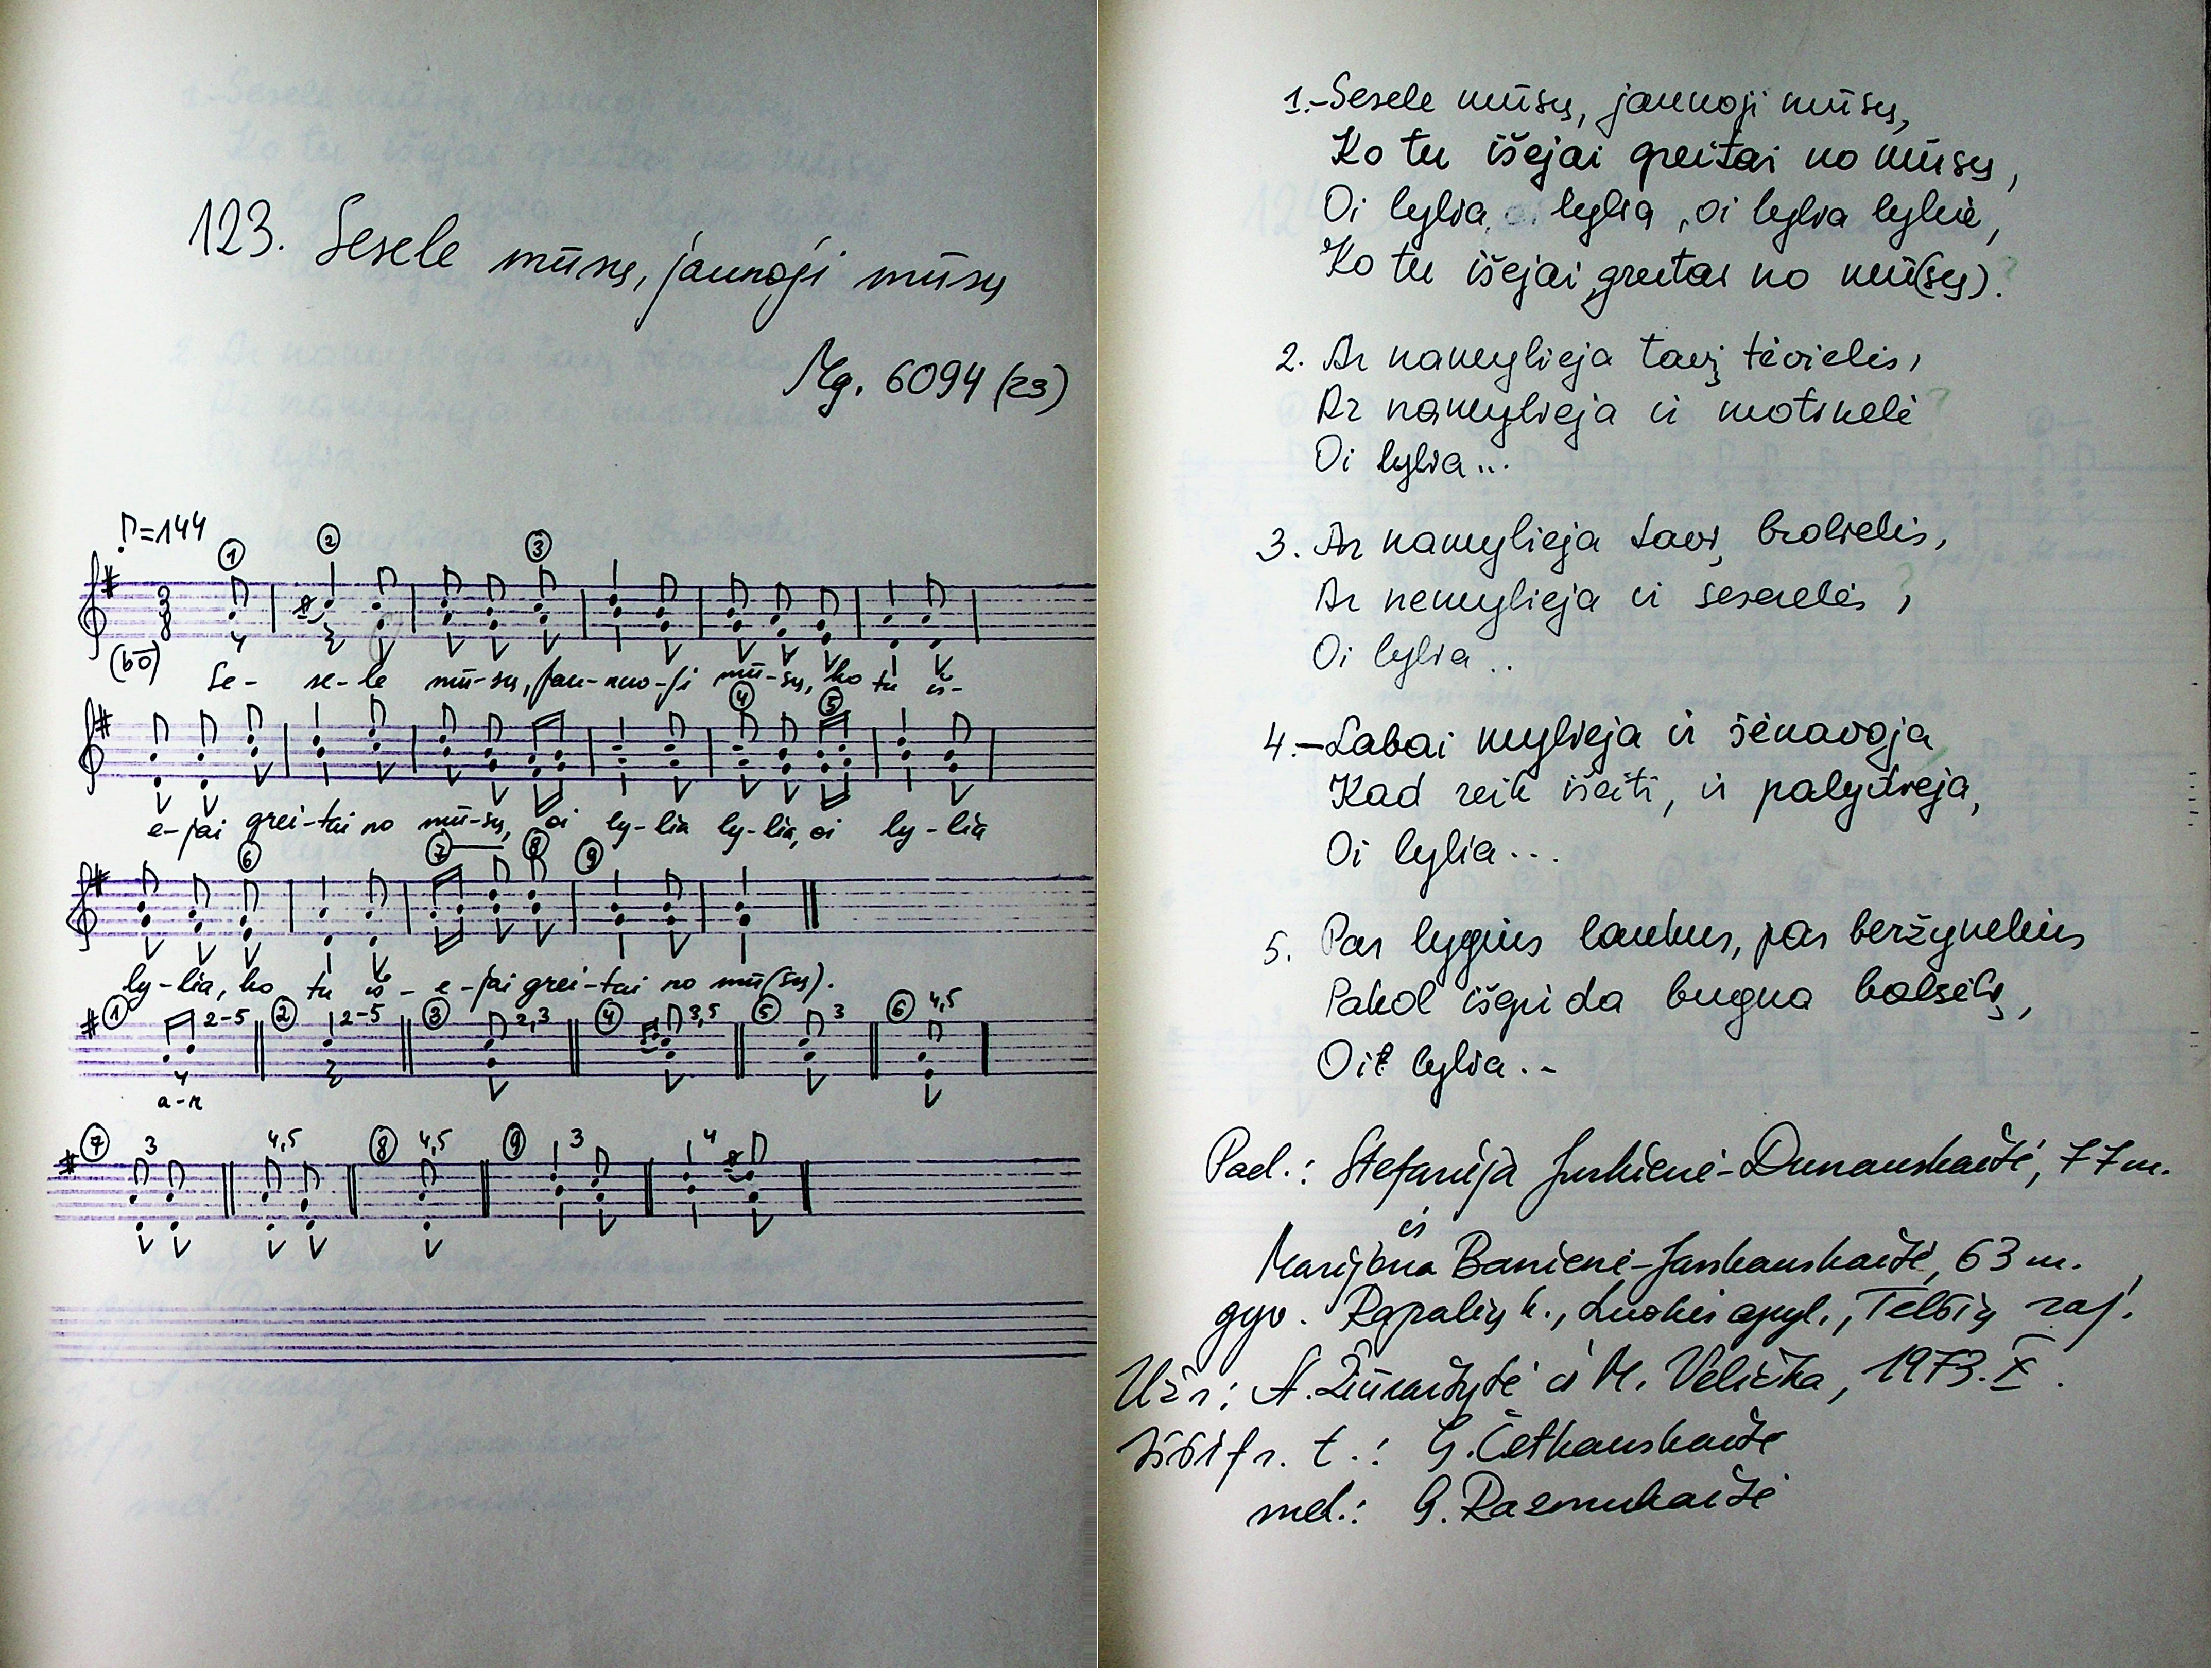 123. Sesele mūsų, jaunoji mūsų
Mg. 6094 (23)
♪=144
① ② ③
3 8
(bō)
Se- se-le mū-sų, jau-nuo-ji mū-sų, ko tu iš-
④ ⑤
e-jai grei-tai no mū-sų, oi ly-lia ly-lia, oi ly-lia
⑥ ⑦ ⑧ ⑨
ly-lia, ko tu iš- e-jai grei-tai no mū(sų).
① 2-5 ② 2-5 ③ 2,3 ④ 3,5 ⑤ 3 ⑥ 4,5
a-r
⑦ 3 4,5 ⑧ 4,5 ⑨ 3 4
1.-Sesele mūsų, jaunoji mūsų,
Ko tu išejai greitai no mūsų,
Oi lylia, oi lylia, oi lylia lylie,
Ko tu išejai greitai no mū(sų).?
2. Ar namylieja tavį tėvielis,
Ar namylieja ir motinelė?
Oi lylia...
3. Ar namylieja tavi, brolielis,
Ar nemylieja ir seserelės?,
Oi lylia..
4.-Labai mylieja ir šėnavoja,
Kad reik išeiti, ir palydieja,
Oi lylia...
5. Par lygius laukus, par beržynelius
Pakol išgirda bugna balselį,
Oi lylia..
Pad.: Stefanija Jurkienė-Dunauskaitė, 77 m.
ir
Marijona Banienė-Jankauskaitė, 63 m.
gyv. Rapalių k., Luokės apyl., Telšių raj.
Užr.: A. Žiūraitytė ir M. Velička, 1973.X.
Iššifr. t.: G. Četkauskaitė
mel.: G. Razmukaitė